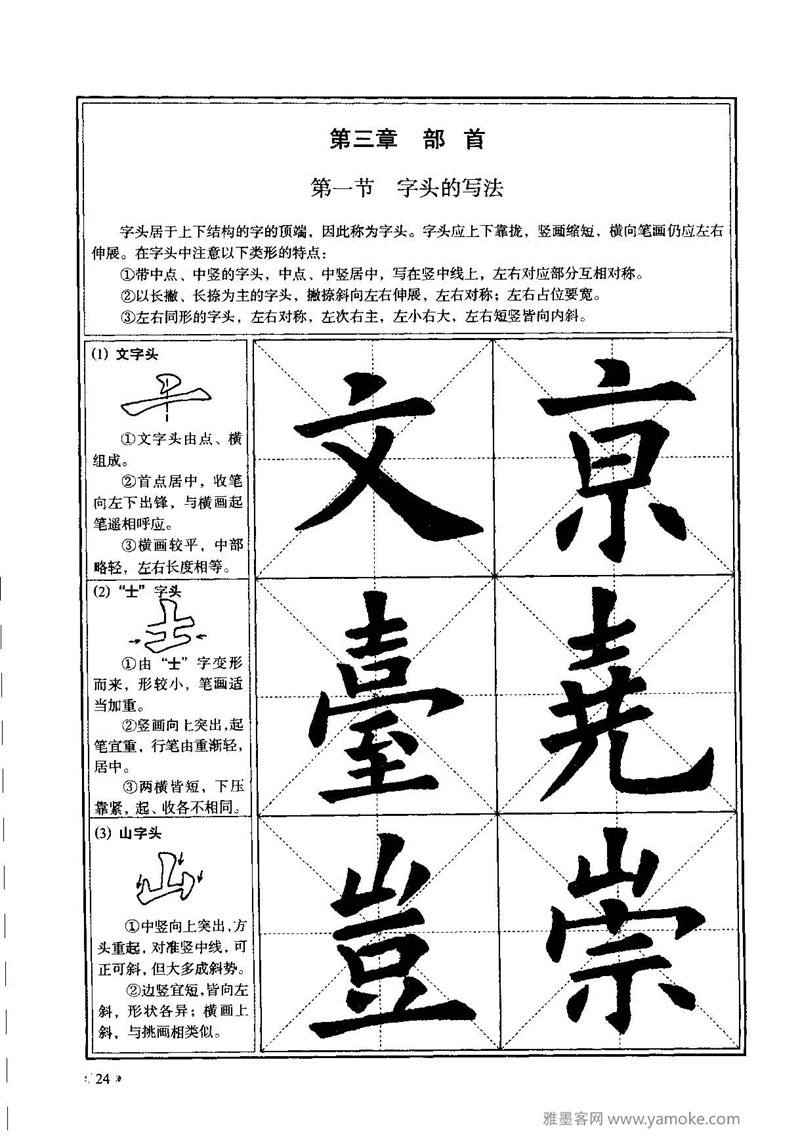 第三章 部 首
第一节 字头的写法
字头居于上下结构的字的顶端，因此称为字头。字头应上下靠拢，竖画缩短，横向笔画仍应左右
伸展。在字头中注意以下类形的特点：
①带中点、中竖的字头，中点、中竖居中，写在竖中线上，左右对应部分互相对称。
②以长撇、长捺为主的字头，撇捺斜向左右伸展，左右对称；左右占位要宽。
③左右同形的字头，左右对称，左次右主，左小右大，左右短竖皆向内斜。
(1) 文字头
①文字头由点、横
组成。
②首点居中，收笔
向左下出锋，与横画起
笔遥相呼应。
③横画较平，中部
略轻，左右长度相等。
文 亰
(2) “士”字头
①由“士”字变形
而来，形较小，笔画适
当加重。
②竖画向上突出，起
笔宜重，行笔由重渐轻，
居中。
③两横皆短，下压
靠紧，起、收各不相同。
臺
(3) 山字头
①中竖向上突出，方
头重起，对准竖中线，可
正可斜，但大多成斜势。
②边竖宜短，皆向左
斜，形状各异；横画上
斜，与挑画相类似。
豈 崇
24
雅墨客网 www.yamoke.com